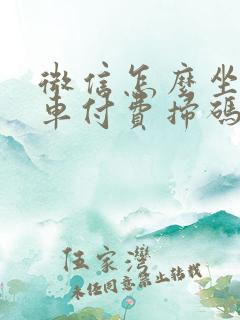 微信怎麼坐
車付費掃碼
伍家灣
未經同意禁止轉載